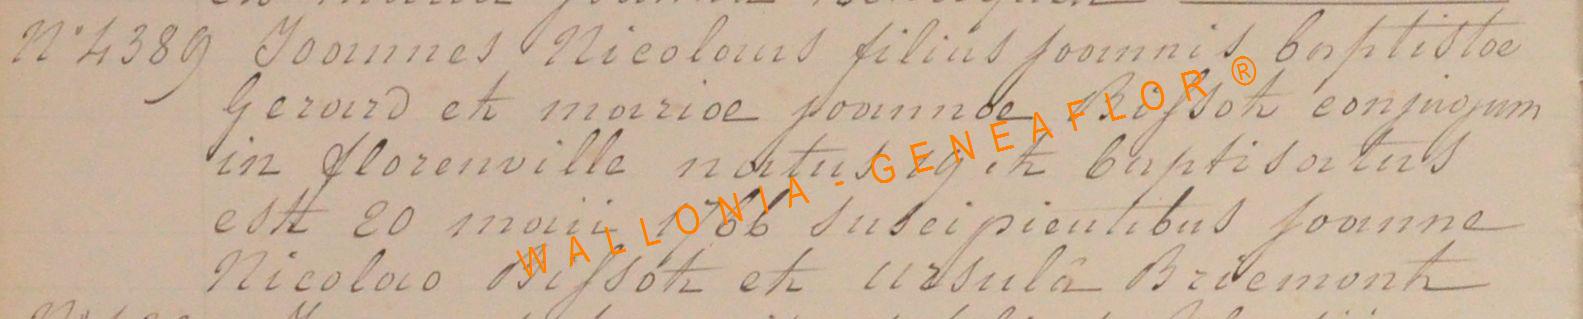 N° 4389 Joannes Nicolaus filius joannis baptistae
Gerard et mariae joannae Bissot conjugum
in florenville natus 19 et baptisatus
est 20 maii 1766 suscipientibus joanne
Nicolao Bissot et ursulâ Briemont
WALLONIA - GENEAFLOR ®